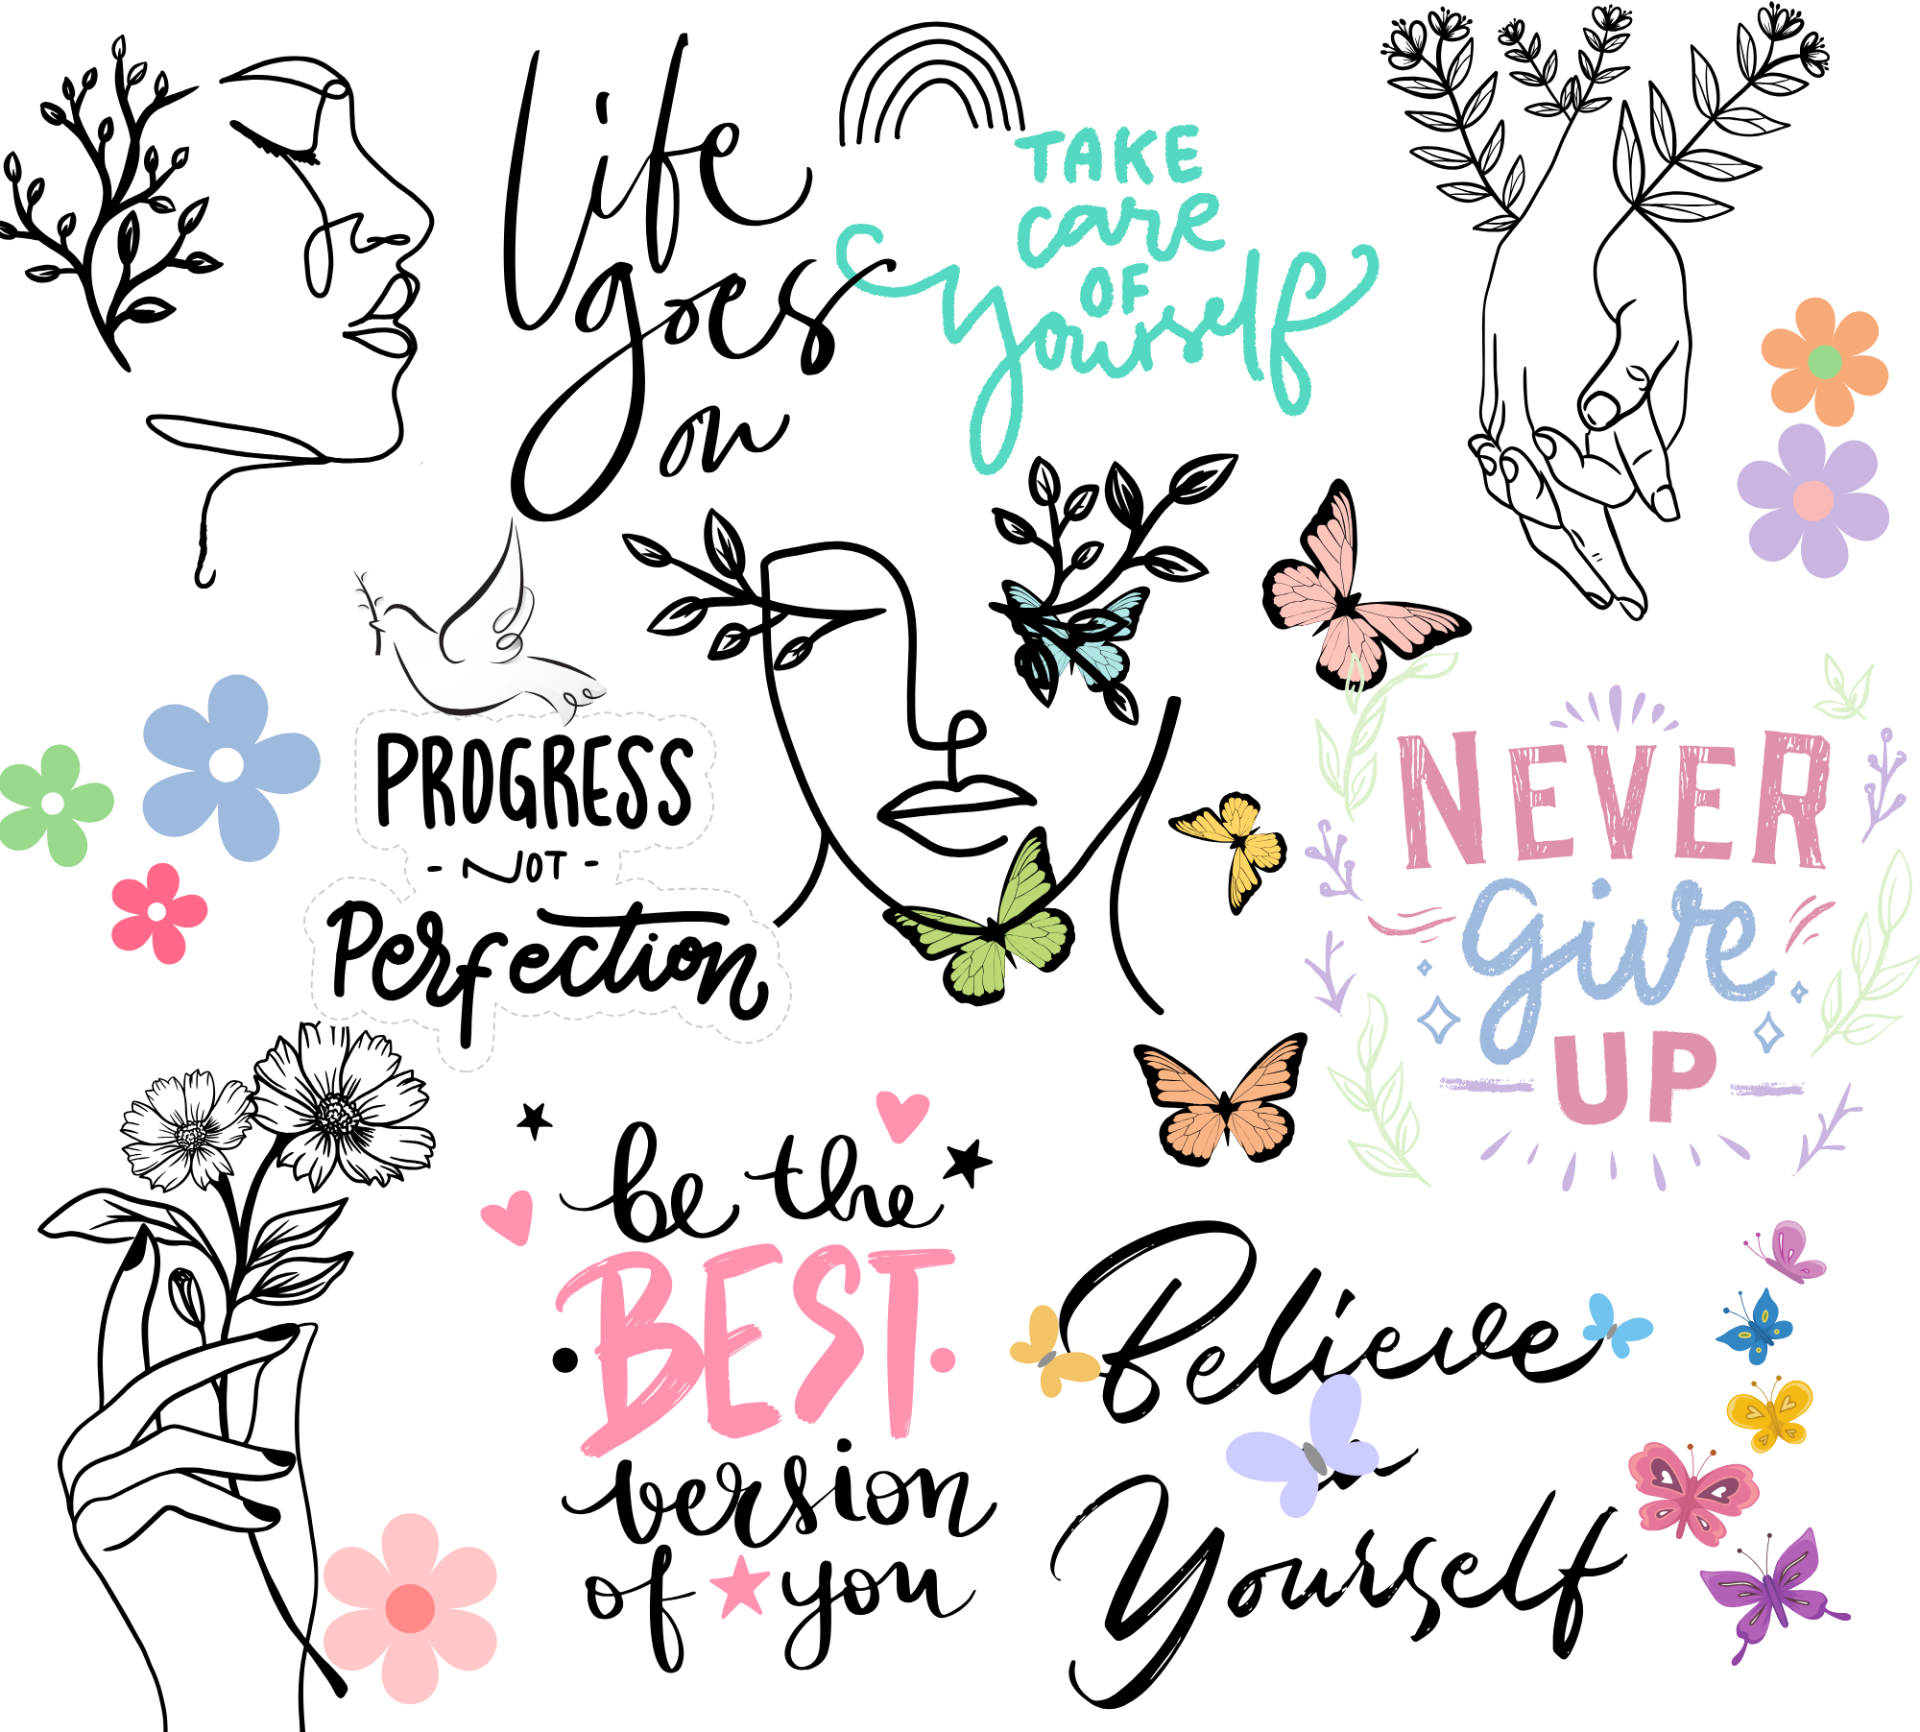 Life
goes
on
TAKE
care
OF
yourself
PROGRESS
- NOT -
Perfection
NEVER
give
UP
be the
BEST
version
of you
Believe
Yourself